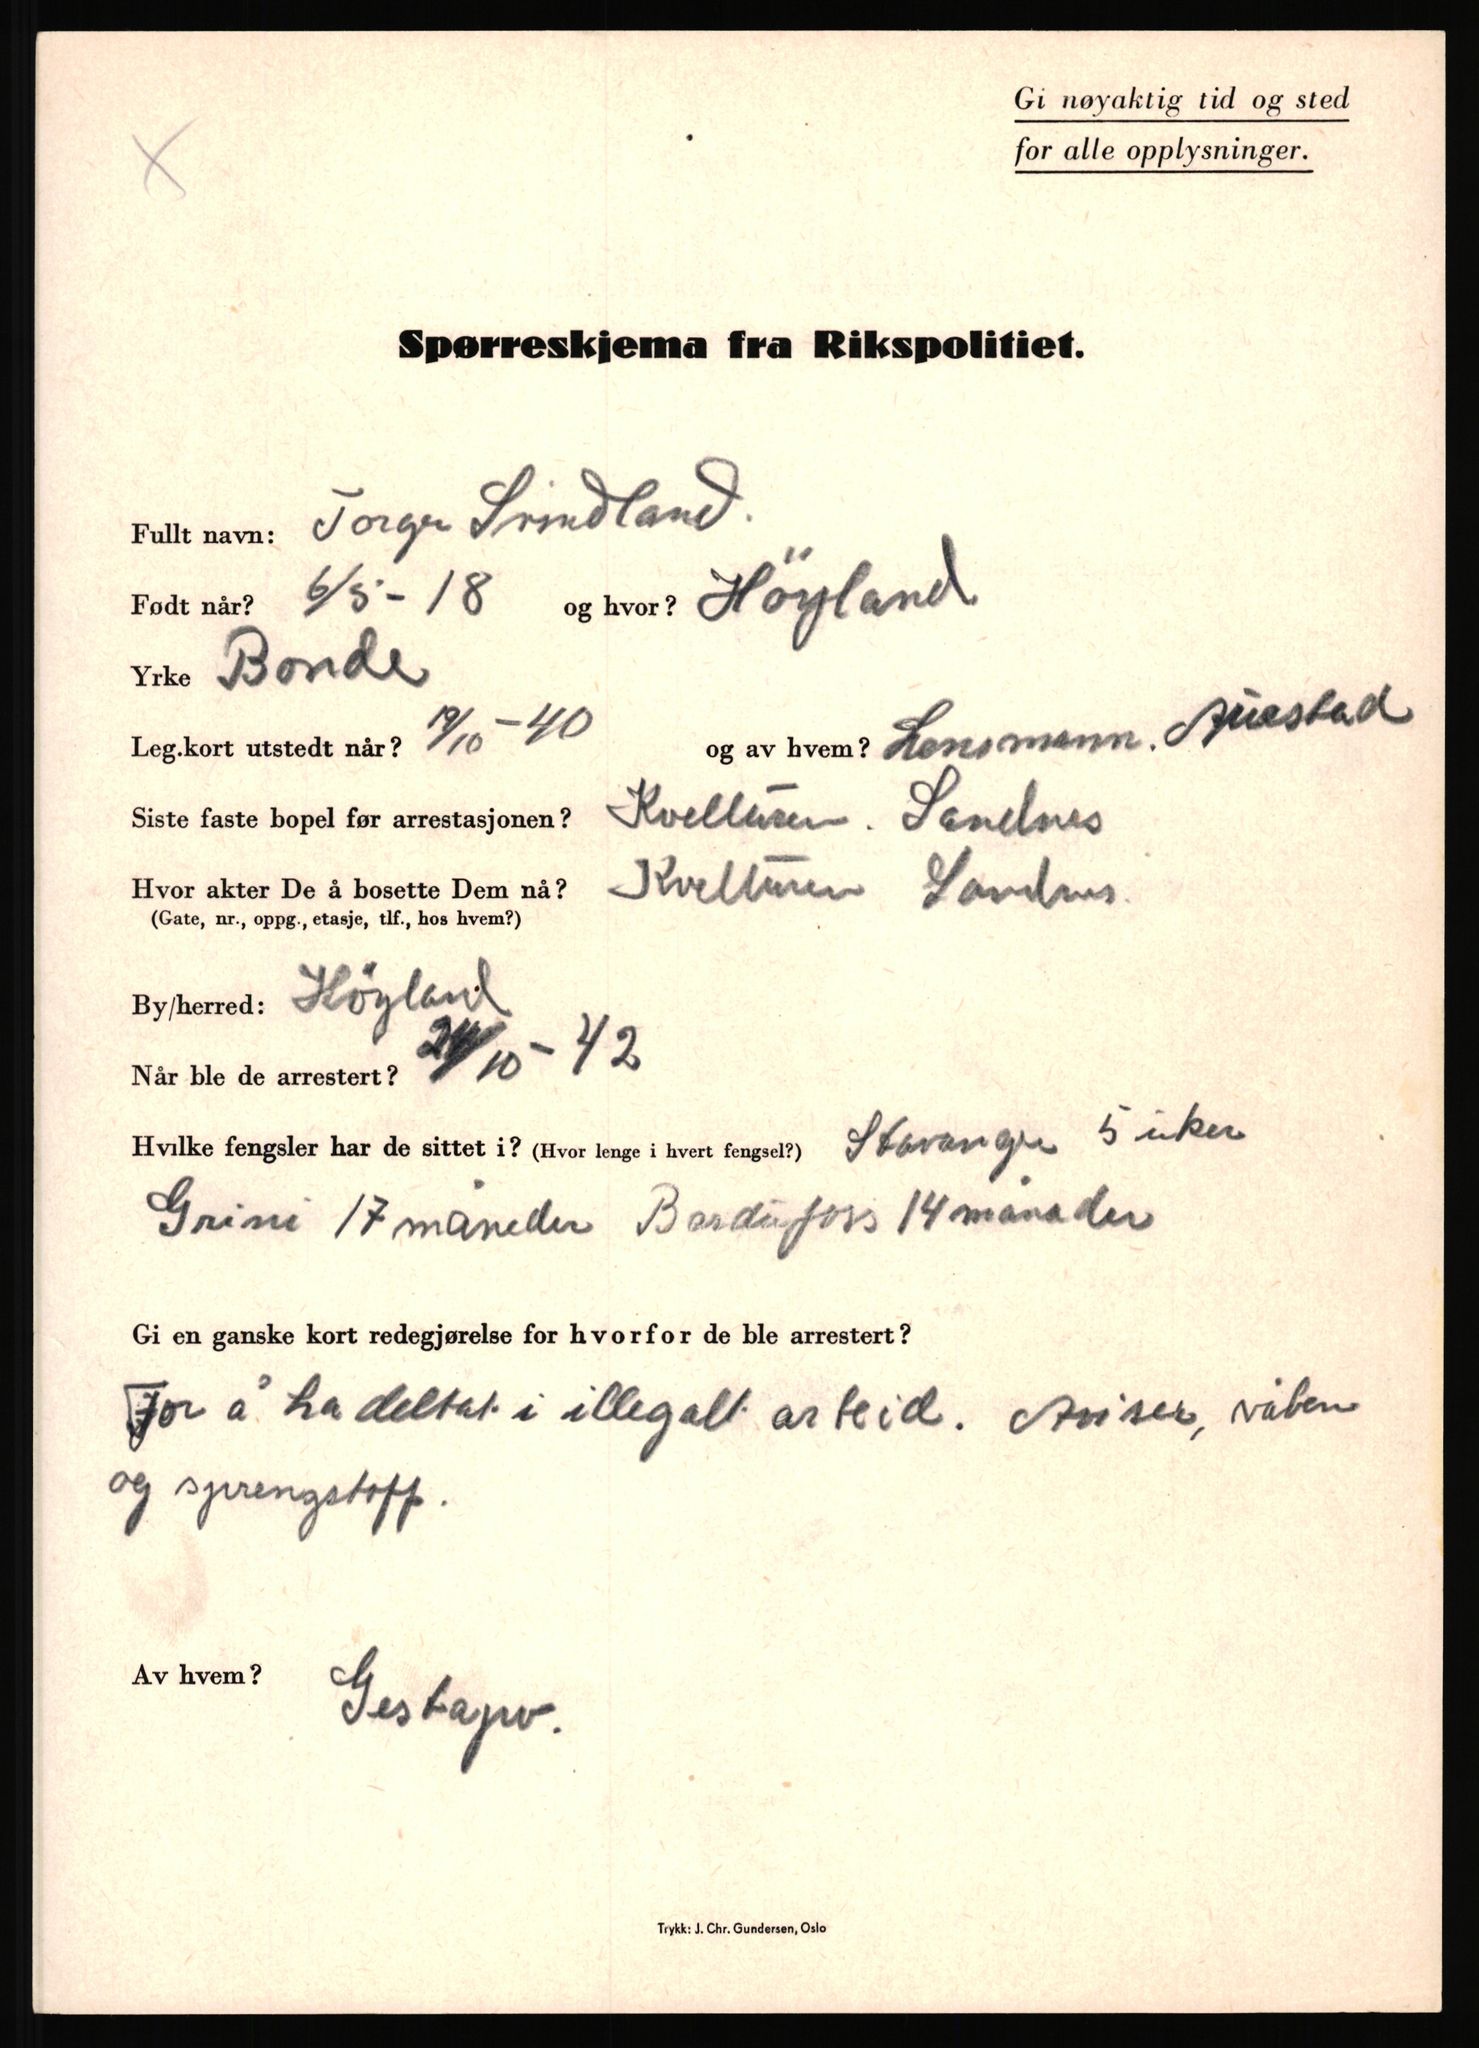 Gi nøyaktig tid og sted
for alle opplysninger.
Spørreskjema fra Rikspolitiet.
Fullt navn: Torger Svindland.
Født når? 6/5-18 og hvor? Höyland
Yrke Bonde
Leg.kort utstedt når? 19/10-40 og av hvem? Lensmann. Auestad
Siste faste bopel før arrestasjonen? Kvelluren. Sandnes
Hvor akter De å bosette Dem nå? Kvelluren Sandnes.
(Gate, nr., oppg., etasje, tlf., hos hvem?)
By/herred: Höyland
Når ble de arrestert? 24/10-42
Hvilke fengsler har de sittet i? (Hvor lenge i hvert fengsel?) Stavanger 5 uker
Grini 17 måneder Bardufoss 14 månader
Gi en ganske kort redegjørelse for hvorfor de ble arrestert?
For å ha deltat i illegalt arbeid. Aviser, våben
og sprengstoff.
Av hvem? Gestapo.
Trykk: J. Chr. Gundersen, Oslo